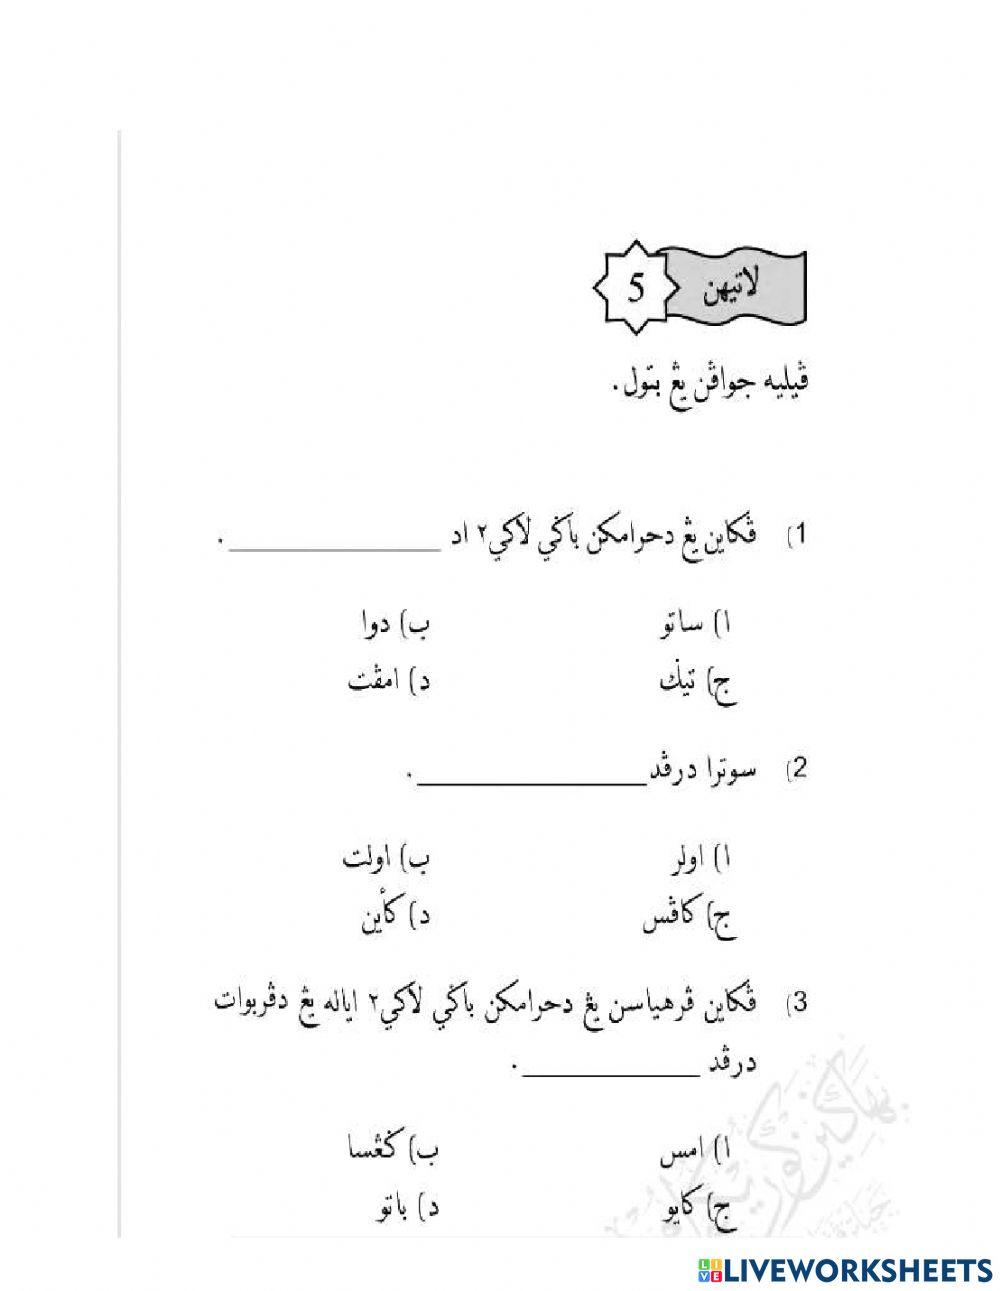 لاتيهن 5
ڤيليه جواڤن يڠ بتول.
1) ڤكاين يڠ دحرامكن باݢي لاكي٢ اد ____________ .
ا) ساتو ب) دوا
ج) تيݢ د) امڤت
2) سوترا درڤد ____________ .
ا) اولر ب) اولت
ج) كاڤس د) كأين
3) ڤكاين ڤرهياسن يڠ دحرامكن باݢي لاكي٢ اياله يڠ دڤربوات
درڤد ____________ .
ا) امس ب) ݢڠسا
ج) كايو د) باتو
LIVEWORKSHEETS